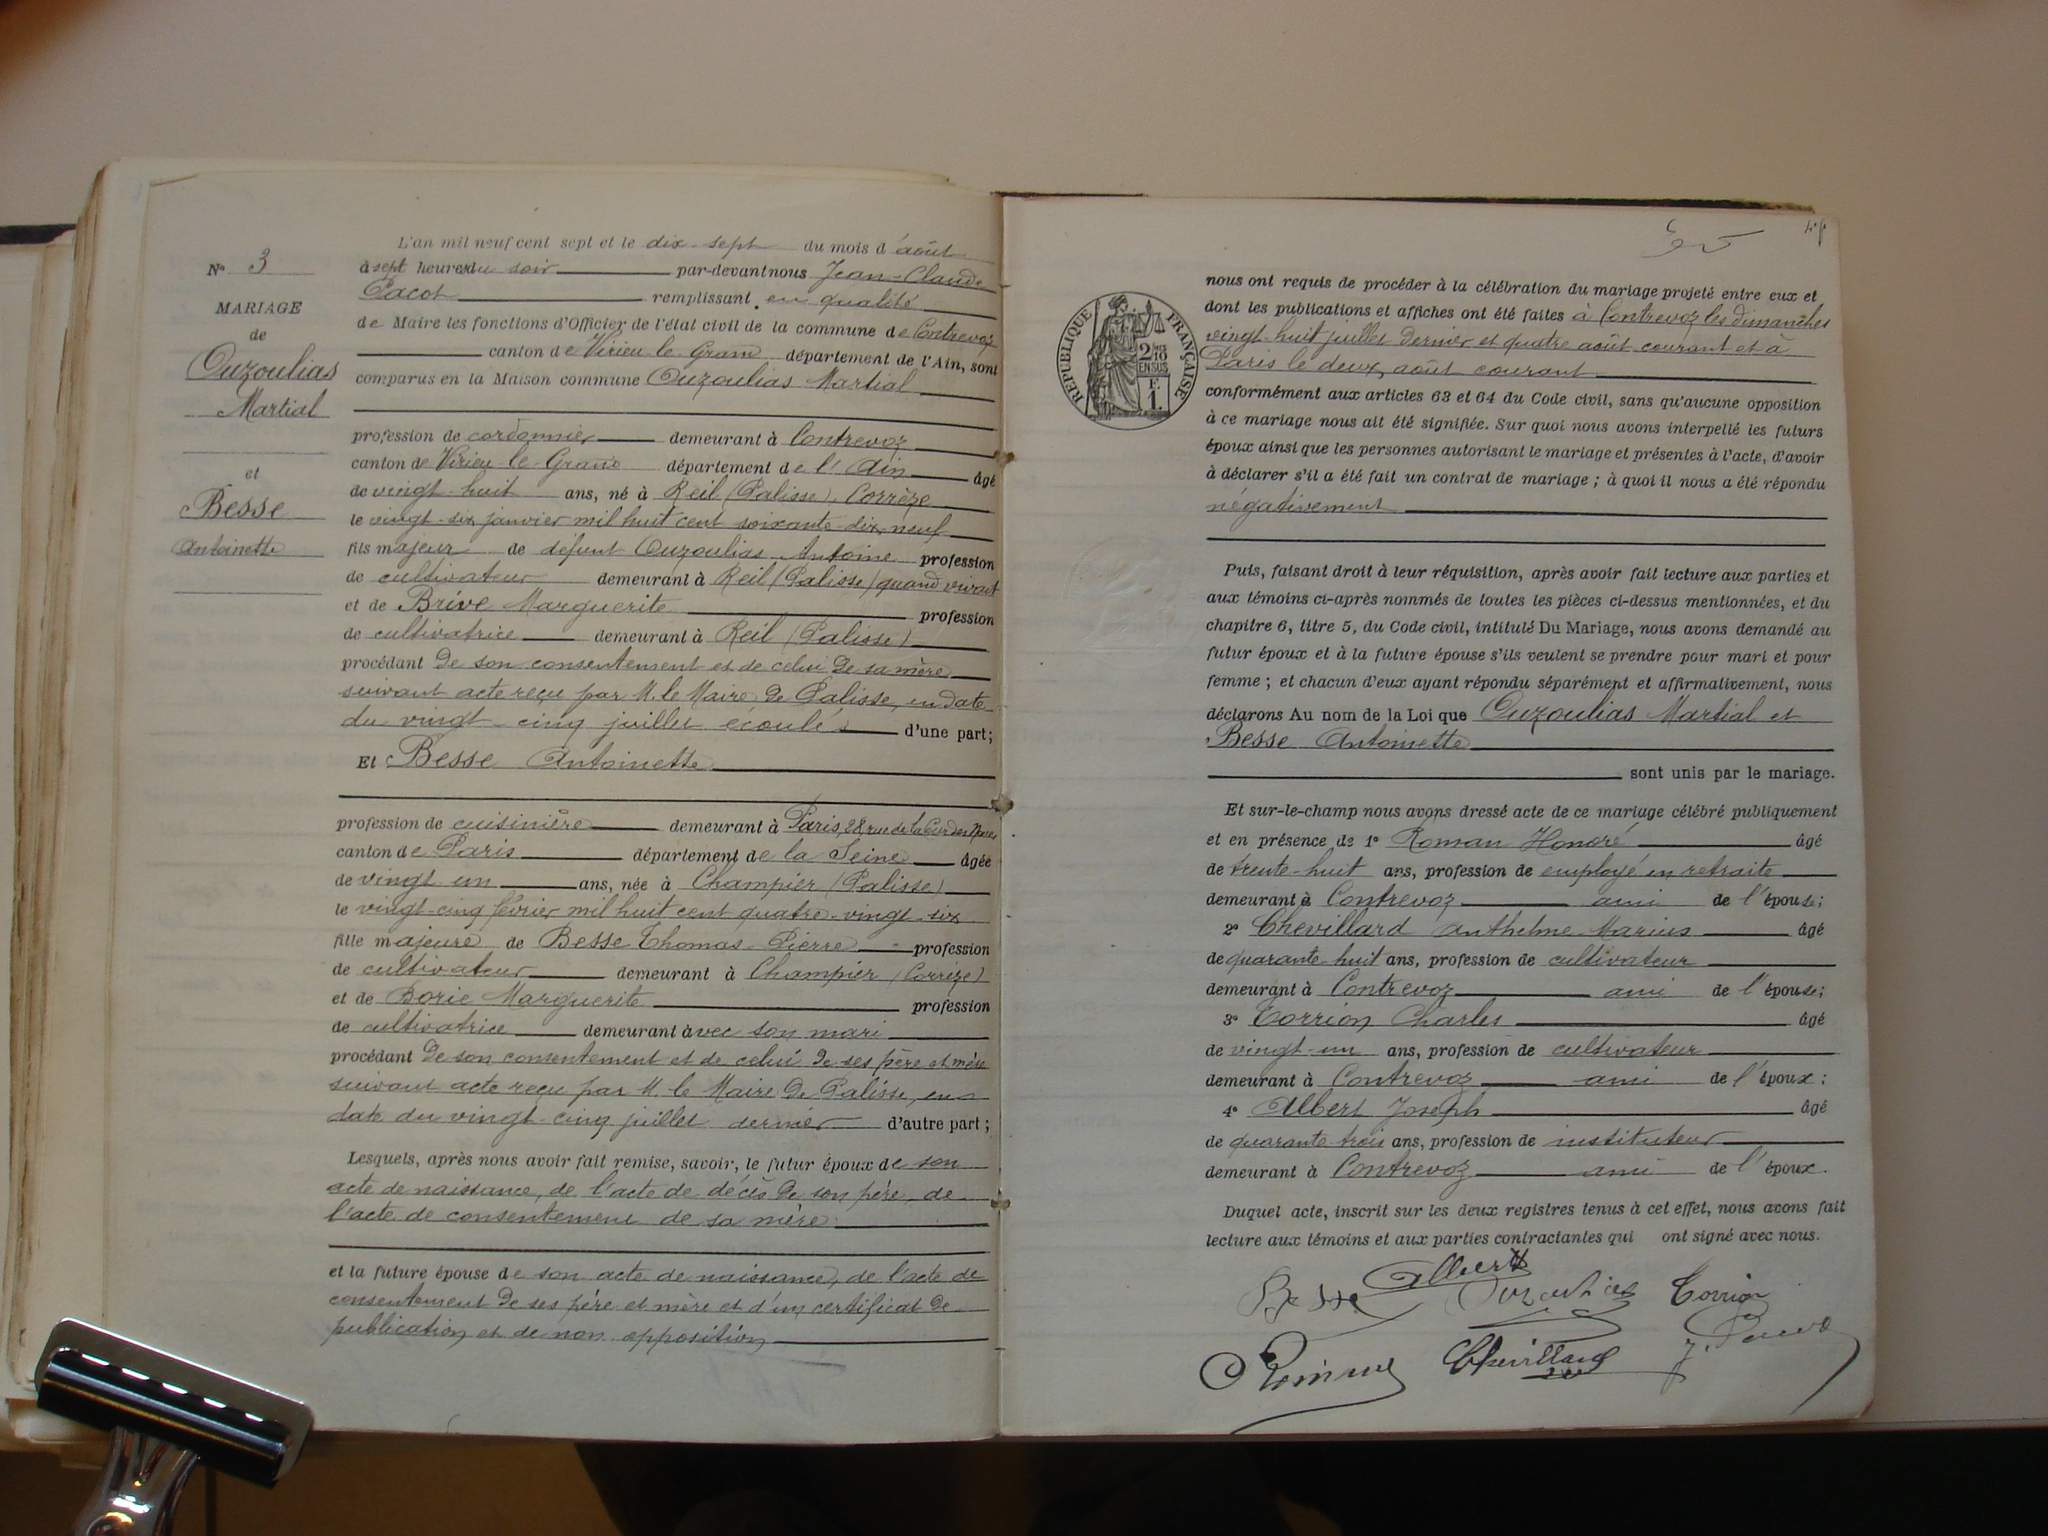 N° 3
MARIAGE
de
Ouzoulias
Martial
et
Besse
Antoinette
L'an mil neuf cent sept et le dix-sept du mois d'août
à sept heures du soir par-devant nous Jean-Claude
Pacot remplissant en qualité
de Maire les fonctions d'Officier de l'état civil de la commune de Contrevoz
canton de Virieu le Grand département de l'Ain, sont
comparus en la Maison commune Ouzoulias Martial
profession de cordonnier demeurant à Contrevoz
canton de Virieu-le-Grand département de l'Ain âgé
de vingt-huit ans, né à Reil (Palisse). Corrèze
le vingt-six janvier mil huit cent soixante-dix-neuf
fils majeur de défunt Ouzoulias Antoine profession
de cultivateur demeurant à Reil (Palisse) quand vivait
et de Brive Marguerite profession
de cultivatrice demeurant à Reil (Palisse)
procédant de son consentement et de celui de sa mère
suivant acte reçu par M. le Maire de Palisse, en date
du vingt-cinq juillet écoulé d'une part;
Et Besse Antoinette
profession de cuisinière demeurant à Paris, 28, rue de la
canton de Paris département de la Seine âgée
de vingt un ans, née à Champier (Palisse)
le vingt-cinq février mil huit cent quatre-vingt-six
fille majeure de Besse Thomas-Pierre profession
de cultivateur demeurant à Champier (Corrèze)
et de Borie Marguerite profession
de cultivatrice demeurant avec son mari
procédant de son consentement et de celui de ses père et mère
suivant acte reçu par M. le Maire de Palisse, en
date du vingt-cinq juillet dernier d'autre part;
Lesquels, après nous avoir fait remise, savoir, le futur époux de son
acte de naissance, de l'acte de décès de son père, de
l'acte de consentement de sa mère
et la future épouse de son acte de naissance, de l'acte de
consentement de ses père et mère et d'un certificat de
publication et de non opposition
RÉPUBLIQUE FRANÇAISE
2/10
EN SUS
F.
1.
nous ont requis de procéder à la célébration du mariage projeté entre eux et
dont les publications et affiches ont été faites à Contrevoz les dimanches
vingt-huit juillet dernier et quatre août courant et à
Paris le deux août courant
conformément aux articles 63 et 64 du Code civil, sans qu'aucune opposition
à ce mariage nous ait été signifiée. Sur quoi nous avons interpellé les futurs
époux ainsi que les personnes autorisant le mariage et présentes à l'acte, d'avoir
à déclarer s'il a été fait un contrat de mariage; à quoi il nous a été répondu
négativement
Puis, faisant droit à leur réquisition, après avoir fait lecture aux parties et
aux témoins ci-après nommés de toutes les pièces ci-dessus mentionnées, et du
chapitre 6, titre 5, du Code civil, intitulé Du Mariage, nous avons demandé au
futur époux et à la future épouse s'ils veulent se prendre pour mari et pour
femme; et chacun d'eux ayant répondu séparément et affirmativement, nous
déclarons Au nom de la Loi que Ouzoulias Martial et
Besse Antoinette
sont unis par le mariage.
Et sur-le-champ nous avons dressé acte de ce mariage célébré publiquement
et en présence de 1° Roman Honoré âgé
de trente-huit ans, profession de employé en retraite
demeurant à Contrevoz ami de l'épouse;
2° Chevillard Anthelme Marius âgé
de quarante-huit ans, profession de cultivateur
demeurant à Contrevoz ami de l'épouse;
3° Torrion Charles âgé
de vingt-un ans, profession de cultivateur
demeurant à Contrevoz ami de l'époux;
4° Albert Joseph âgé
de quarante-trois ans, profession de instituteur
demeurant à Contrevoz ami de l'époux.
Duquel acte, inscrit sur les deux registres tenus à cet effet, nous avons fait
lecture aux témoins et aux parties contractantes qui ont signé avec nous.
Besse Albert Ouzoulias Torrion
Chevillard